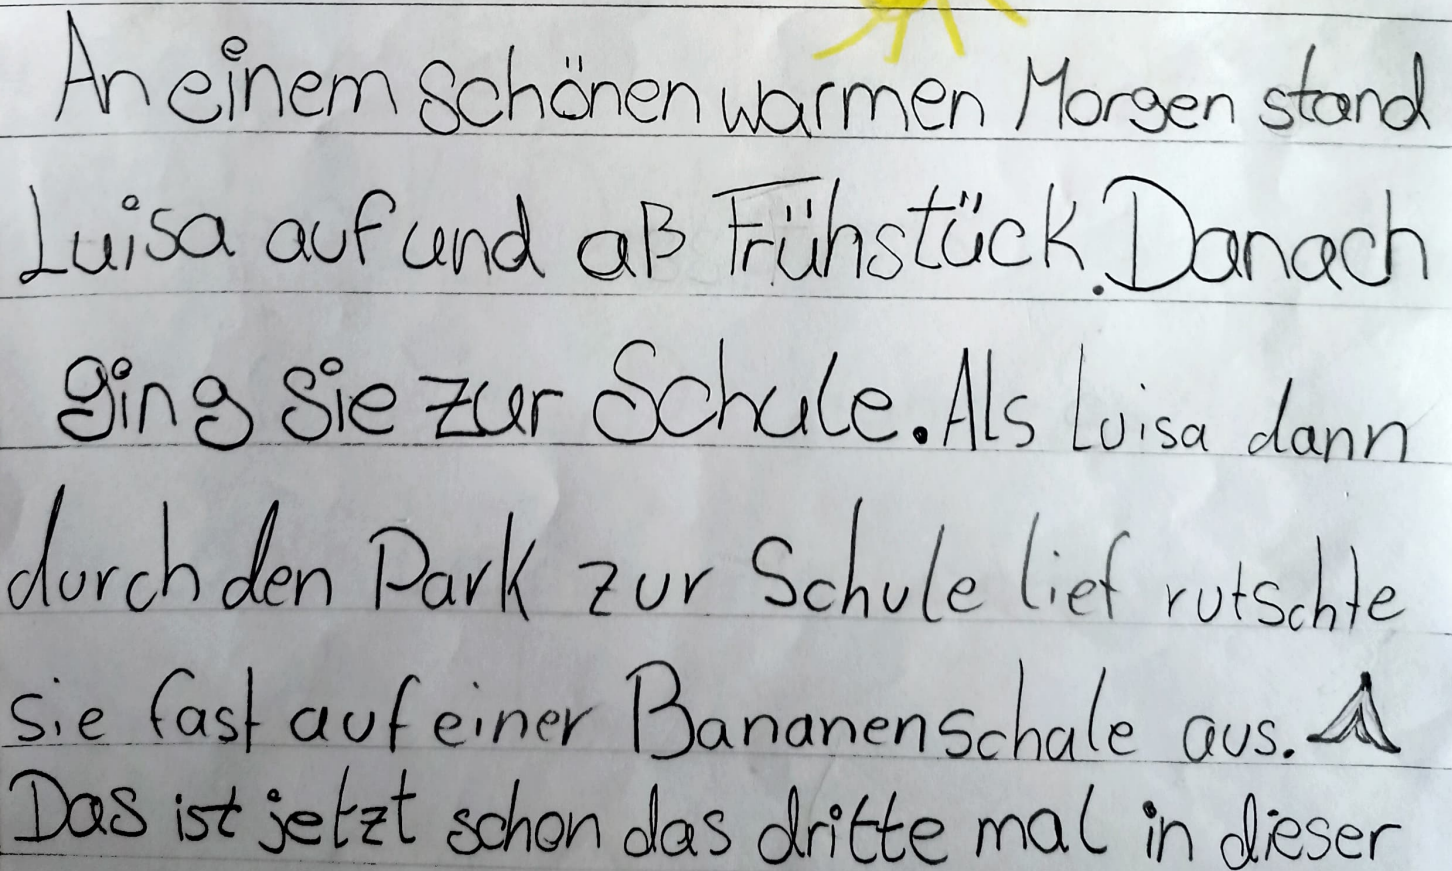 An einem schönen warmen Morgen stand
Luisa auf und aß Frühstück. Danach
ging sie zur Schule. Als Luisa dann
durch den Park zur Schule lief rutschte
sie fast auf einer Bananenschale aus.
Das ist jetzt schon das dritte mal in dieser